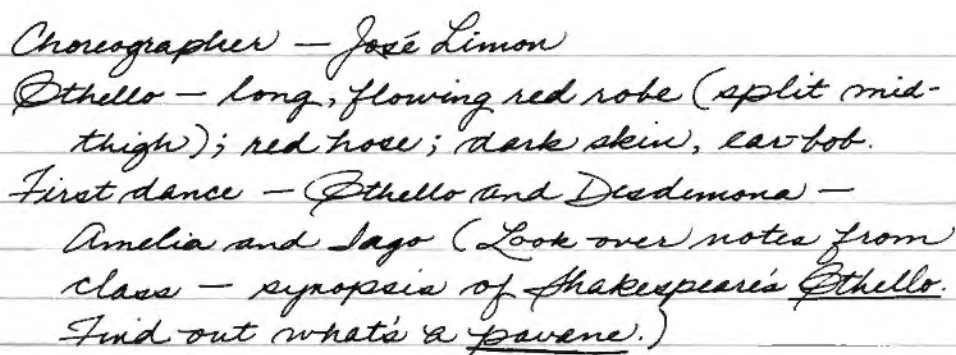 Choreographer — José Limon
Othello — long, flowing red robe (split mid-
thigh); red hose; dark skin, ear-bob.
First dance — Othello and Desdemona —
Amelia and Iago (Look over notes from
class — synopsis of Shakespeare's Othello.
Find out what's a pavane.)